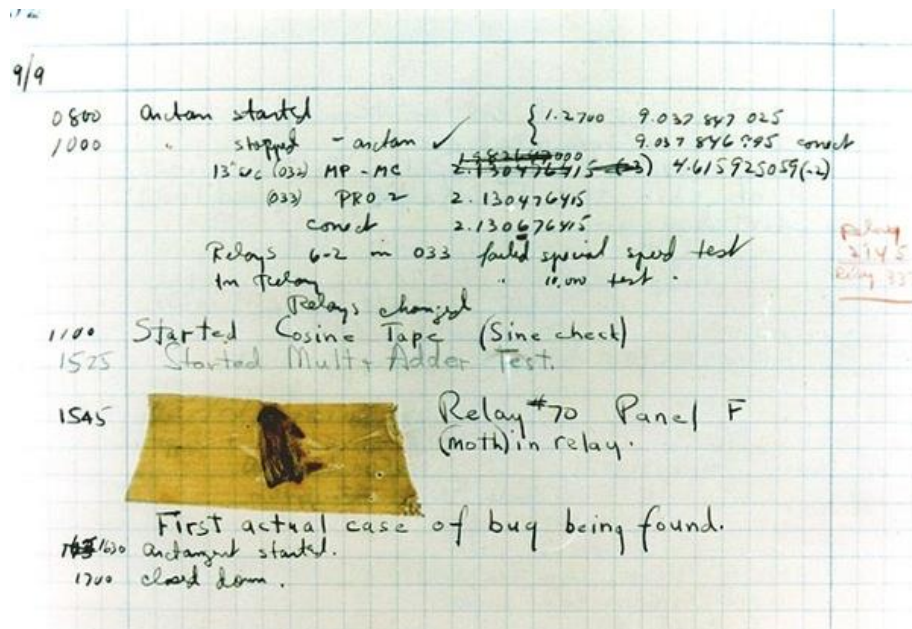 9/9
0800 Antan started
1000 " stopped - antan ✓ { 1.2700 9.037 847 025
9.037 846 995 conect
13"uc (032) MP - MC 2.130476415 (-3) 4.615925059(-2)
(033) PRO 2 2.130476415
conect 2.130676415
Relays 6-2 in 033 failed special speed test
In Relay " 10,000 test .
Relays changed
1100 Started Cosine Tape (Sine check)
1525 Started Mult+ Adder Test.
1545 Relay #70 Panel F
(moth) in relay.
First actual case of bug being found.
1630 antangent started.
1700 closed down.
Relay
2145
Relay 337